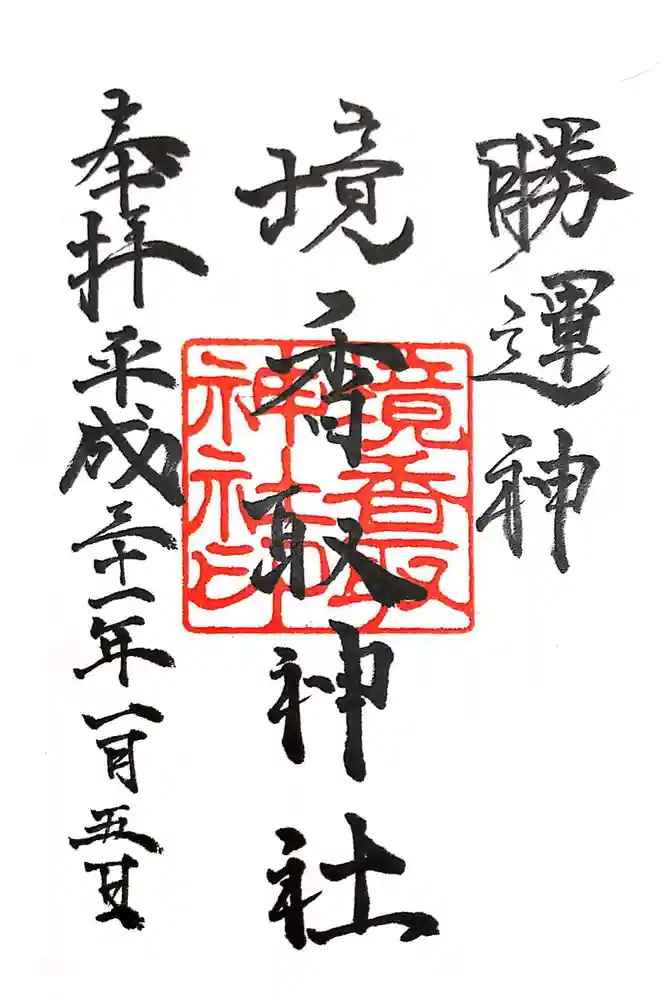 勝運神
境香取神社
奉拝 平成三十一年一月五日
境香取
神社印